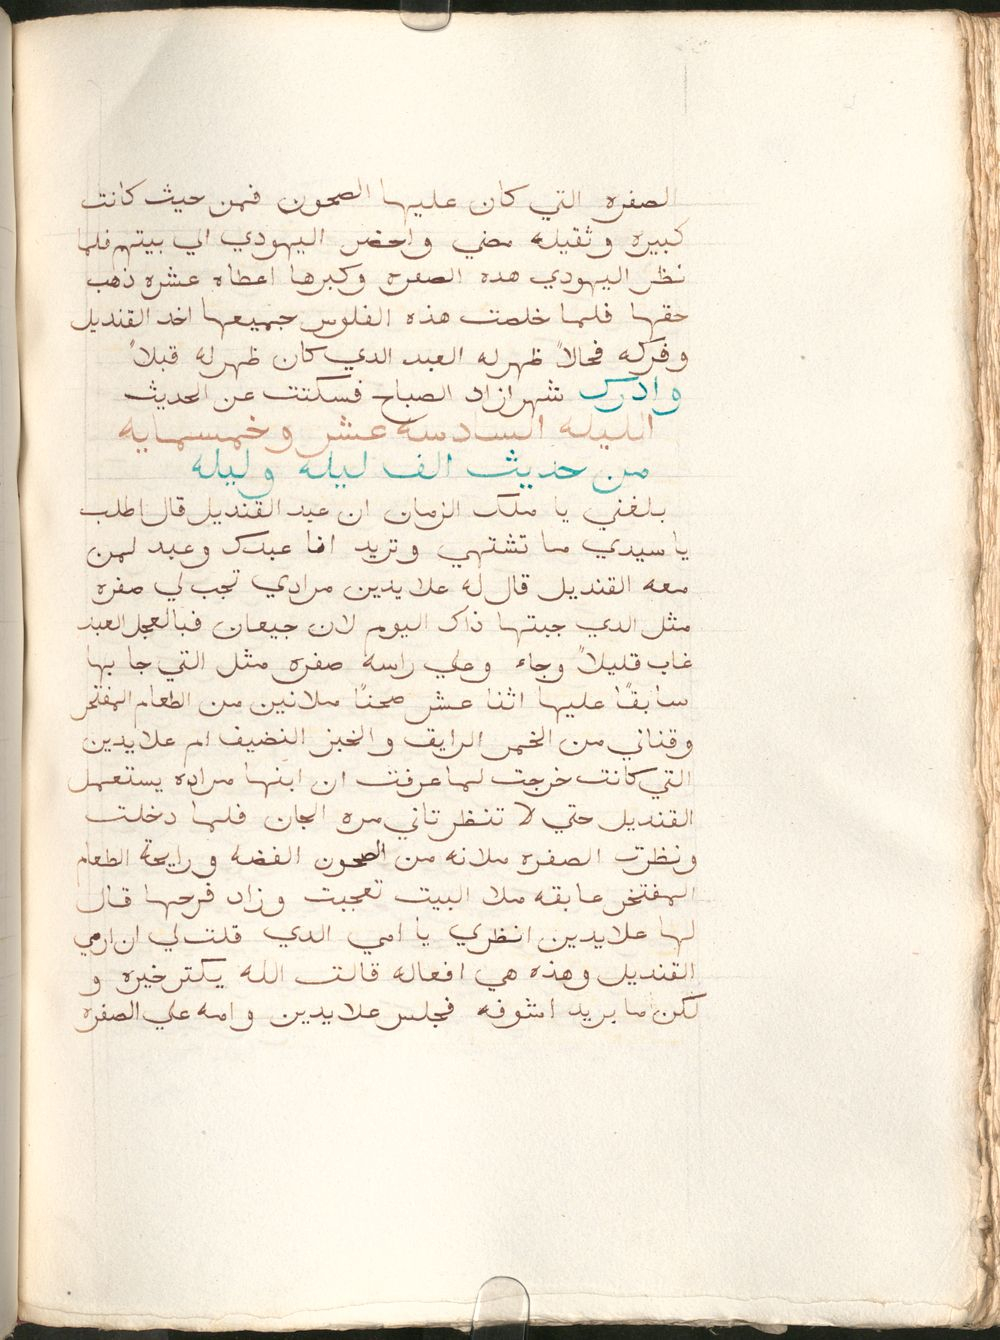 الصفره التي كان عليها الصحون فمن حيث كانت
كبيره وثقيله مضي واحضر اليهودي الي بيتهم فلما
نظر اليهودي هده الصفره وكبرها اعطاه عشره ذهب
حقها فلما خلصت هذه الفلوس جميعها اخد القنديل
وفركه فحالاً ظهر له العبد الدي كان ظهر له قبلاً
وادرك شهرازاد الصباح فسكتت عن الحديث
الليله السادسه عشر وخمسمايه
من حديث الف ليله وليله
بلغني يا ملك الزمان ان عبد القنديل قال اطلب
يا سيدي ما تشتهي وتريد انا عبدك وعبد لمن
معه القنديل قال له علايدين مرادي تجب لي صفره
مثل الدي جبتها ذاك اليوم لان جيعان فبالعجل العبد
غاب قليلاً وجاء وعلي راسه صفره مثل التي جا بها
سابقًا عليها اثنا عشر صحنًا ملانين من الطعام المفتخر
وقناني من الخمر الرايق والخبز النضيف ام علايدين
التي كانت خرجت لما عرفت ان ابنها مراده يستعمل
القنديل حتي لا تنظر تاني مره الجان فلما دخلت
ونظرت الصفره ملانه من الصحون الفضه ورايحة الطعام
المفتخر عابقه ملا البيت تعجبت وزاد فرحها قال
لها علايدين انظري يا امي الدي قلت لي ان ارمي
القنديل وهذه هي افعاله قالت الله يكتر خيره و
لكن ما بريد اشوفه فجلس علايدين وامه علي الصفره